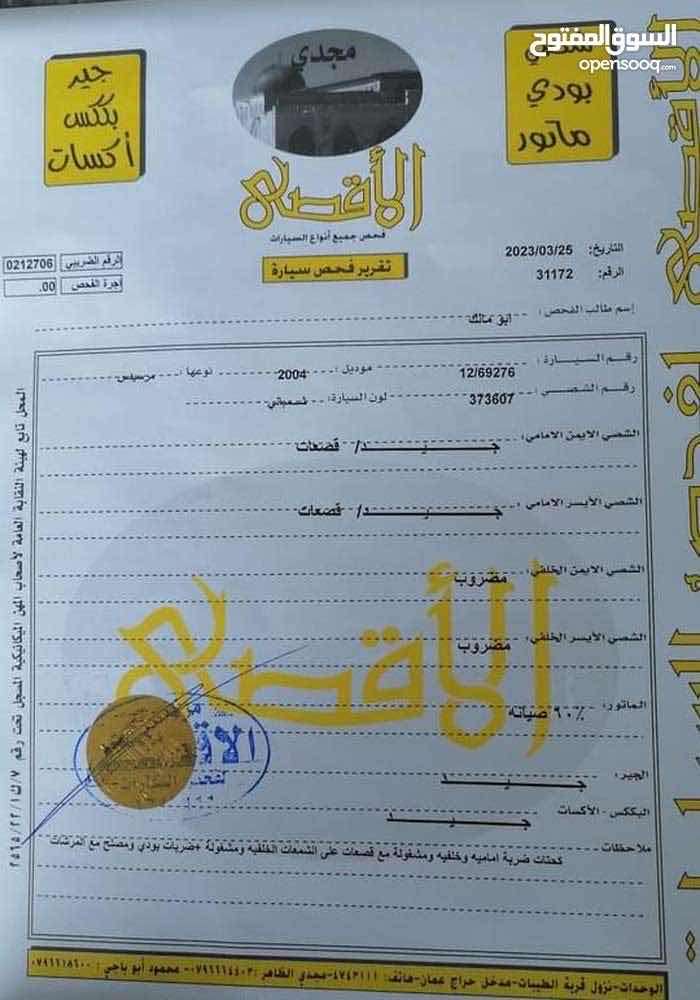 السوق المفتوح
opensooq.com
شصي
بودي
ماتور
مجدي
جير
بككس
أكسات
الأقصى
فحص جميع أنواع السيارات
تقرير فحص سيارة
التاريخ: 2023/03/25
الرقم: 31172
الرقم الضريبي 0212706
أجرة الفحص 00.
إسم طالب الفحص : ابو مالك
رقم السيارة : 12/69276 موديل : 2004 نوعها : مرسيدس
رقم الشصي : 373607 لون السيارة:
الشصي الأيمن الامامي: جيد/ قصعات
الشصي الأيسر الامامي: جيد/ قصعات
الشصي الايمن الخلفي: مضروب
الشصي الأيسر الخلفي: مضروب
الماتور: ٦٠٪ صيانه
الجير: جيد
البككس - الأكسات : جيد
ملاحظات
كحتات ضربة اماميه وخلفيه ومشغولة مع قصعات على الشمعات الخلفيه ومشغولة +ضربات بودي ومصلح مع المرشات
الأقصى
المحل تابع لهيئة النقابة العامة لأصحاب المهن الميكانيكية المسجل تحت رقم
الوحدات-نزول قرية الطيبات-مدخل حراج عمان-هاتف: ٤٧٤٣١١١-مجدي الظاهر :٠٧٩٦٦٦٤٤٠٣- محمود أبو باجي : ٠٧٩٦٦١٨٦٠٠